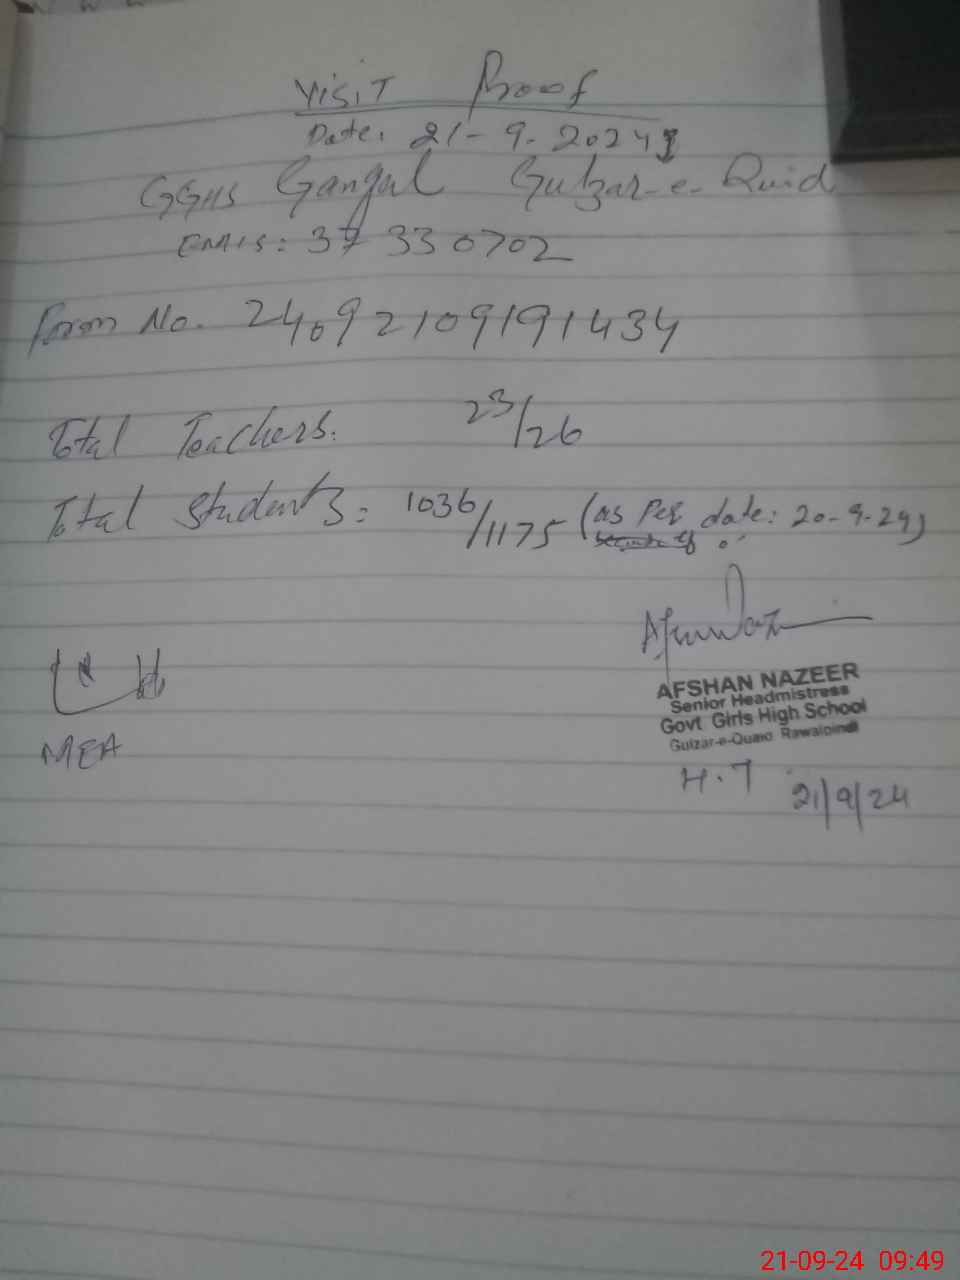 Visit Proof
Date: 21-9-2024
GGHS Gangal Gulzar-e-Quid
EMIS: 37330702
Form No. 24092109191434
Total Teachers: 23/26
Total Students: 1036/1175 (as Per date: 20-9-24)
AFSHAN NAZEER
Senior Headmistress
Govt Girls High School
Gulzar-e-Quaid Rawalpindi
MEA
H.T 21/9/24
21-09-24 09:49